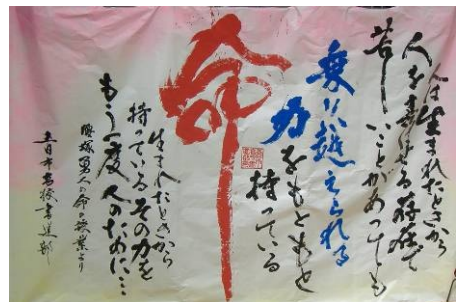 人は生まれたときから
人を幸せにする存在で
苦しいことがあっても
乗り越えられる
力をもともと
持っている
命
生まれたときから
持っているその力を
もう一度人のために…
腰塚勇人の命の授業より
五日市高校書道部